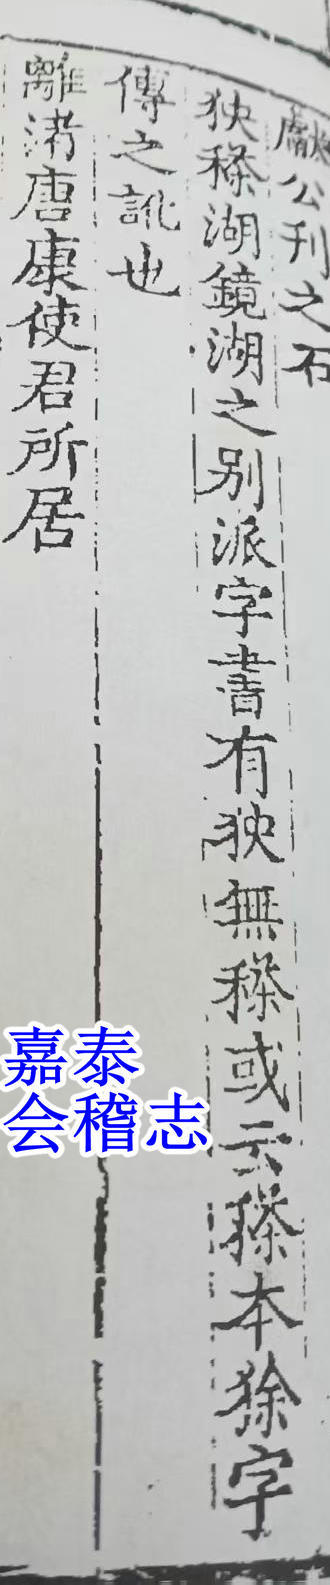 獻公刊之石
狹𥠻湖鏡湖之別派字書有狹無𥠻或云𥠻本狳字
傳之訛也
離渚唐康使君所居
嘉泰
会稽志